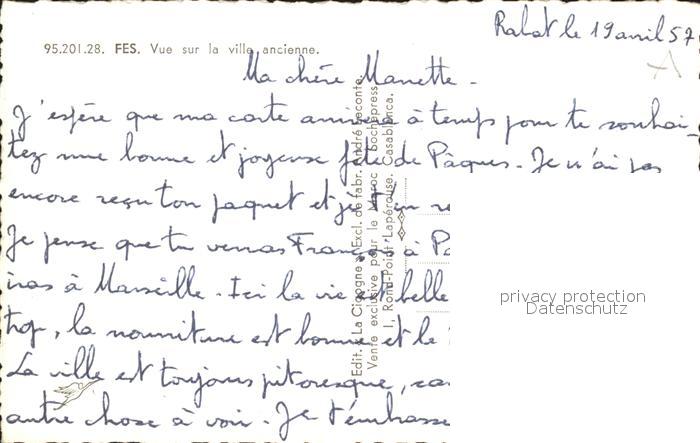 Rabat le 19 avril 57
95.201.28. FES. Vue sur la ville ancienne.
Ma chère Manette -
J'espère que ma carte arrivera à temps pour te souhai-
tez une bonne et joyeuse fête de Pâques. Je n'ai pas
encore reçu ton paquet et je t'en re
Je pense que tu verras François à Pa
iras à Marseille. Ici la vie est belle
trop, la nourriture est bonne et le
La ville est toujours pitoresque,
autre chose à voir. Je t'embrasse
Edit. "La Cigogne" Excl. de fabr. André Leconte.
Vente exclusive pour le Maroc : Sochepress
1, Rond-Point Lapérouse. Casablanca.
privacy protection
Datenschutz